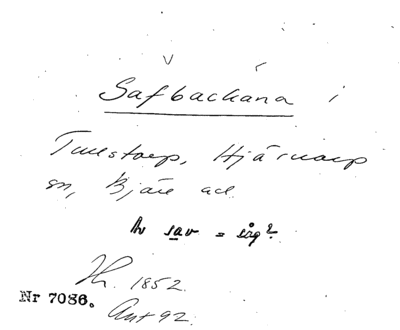 Säfbackana
Tunstorp, Hjärnarp
sn, Bjäre
Av sav = säg?
1852.
Nr 7086.
Ant 92.